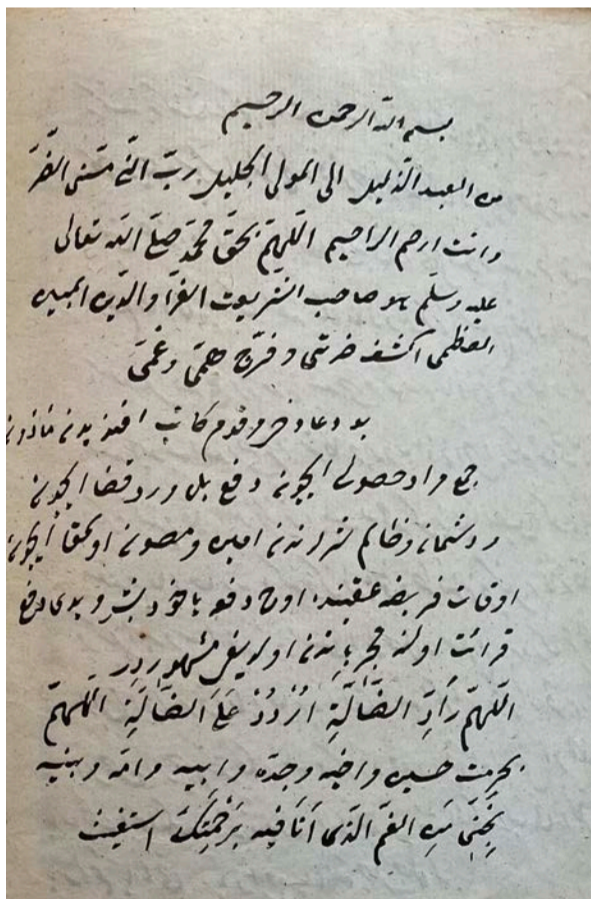 بسم الله الرحمن الرحيم
من العبد الذليل الى المولى الجليل ربّ انّى مسّنى الضّرّ
وانت ارحم الراحيم اللهمّ بحقّ محمّد صلّى الله تعالى
عليه وسلّم صاحب الشريعت الغرّا والدّين المبين
العظمى اكشف ضرّى و فرّج همّى وغمّى
بو دعا دخى مخدوم كاتب افندیدن
جمع مراد حصولى ايچون دفع بلا ورد قضا ايچون
ودشمان وظالم شرلرندن امين ومصون اولمق ايچون
اوقات فريضه عقبنده اوچ دفعه ياخود بش ويدى دفع
قرائت اولنه مجرباتدن اولديغى مشهوردر
اللهمّ رَادِّ الضَّالَّةِ اُرْدُدْ عَلَىَّ الضَّالَّةِ اللهمّ
بحرمت حسين واخيه وجدّه وابيه وامّه وبنيه
نَجِّنِى مِنَ الغمّ الّذى اَنَا فيه بِرَحْمَتِكَ استغيث